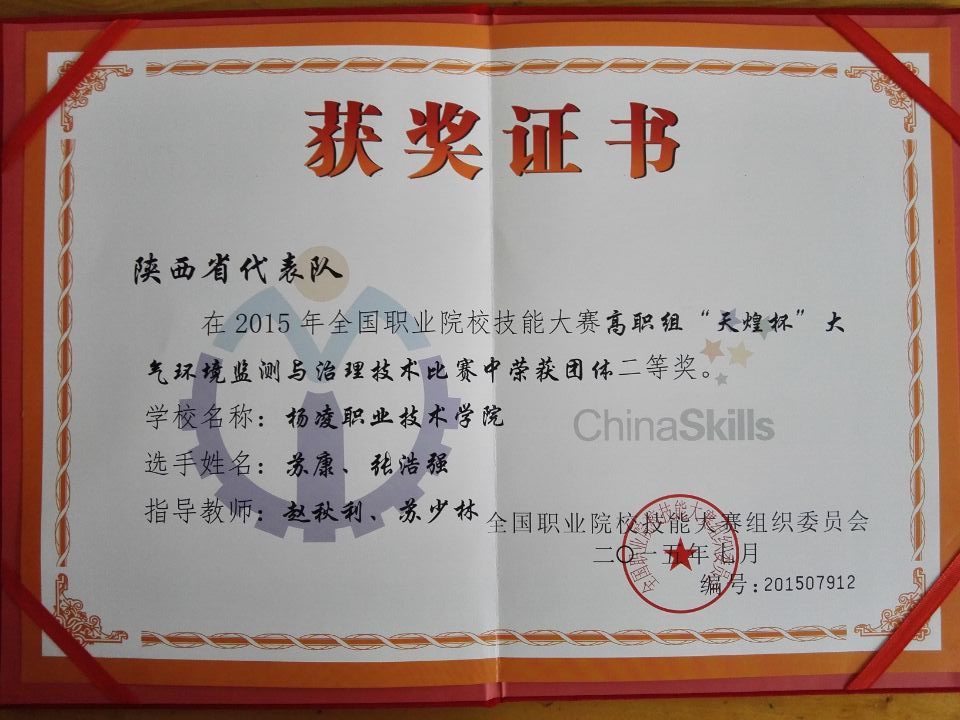 获奖证书
陕西省代表队
在2015年全国职业院校技能大赛高职组“天煌杯”大
气环境监测与治理技术比赛中荣获团体二等奖。
ChinaSkills
学校名称：杨凌职业技术学院
选手姓名：苏康、张浩强
指导教师：赵秋利、苏少林
全国职业院校技能大赛组织委员会
二〇一五年七月
编号：201507912
全国职业院校技能大赛组织委员会